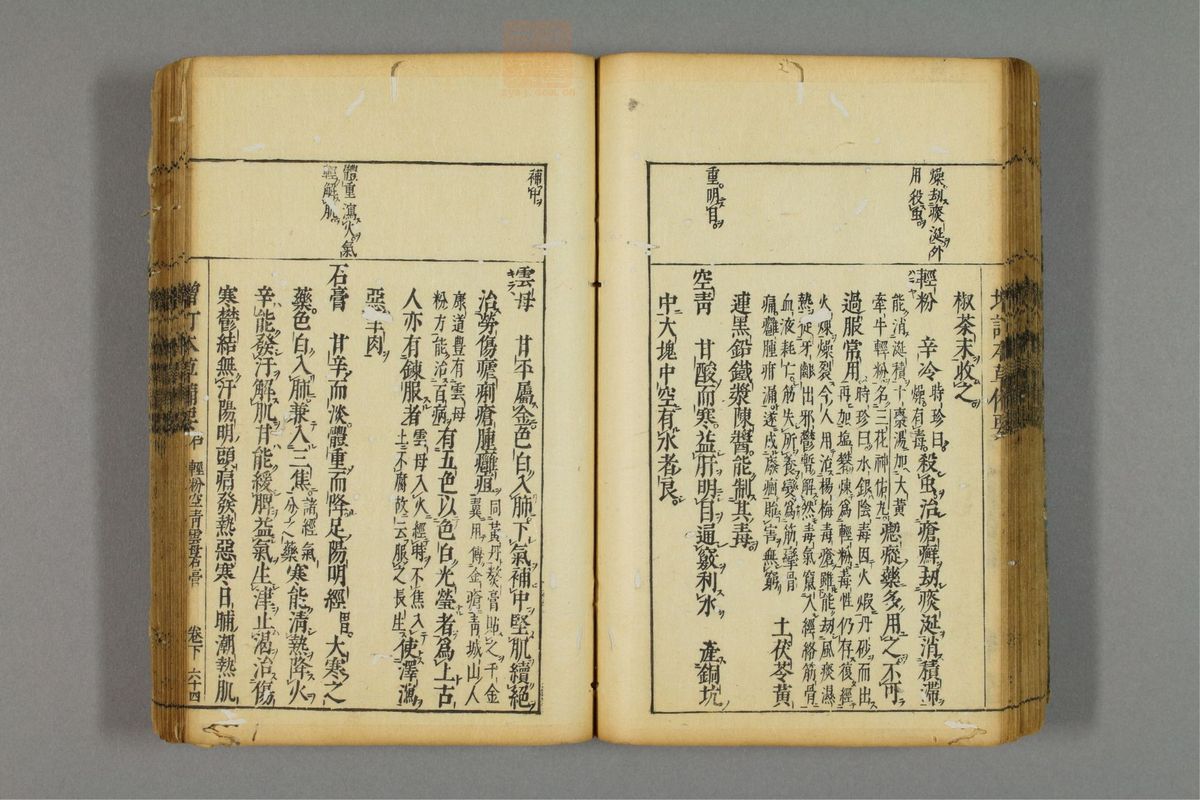 燥劫痰涎外
用殺虫
重明目
椒茶末收之
輕粉 辛冷 時珍曰
燥有毒 殺虫治瘡癬劫痰涎消積滯
能消涎積十棗湯加大黃
牽牛輕粉名三花神佑丸 瘛瘲藥多用之不可
過服常用 時珍曰水銀陰毒因火煅丹砂而出
再加塩礬煉爲輕粉毒性仍存復經
火煉燥裂今人用治楊梅毒瘡雖能劫風痰濕
熱從牙齦出邪鬱暫解然毒氣竄入經絡筋骨
血液耗亡筋失所養變爲筋攣骨
痛癰腫疳漏遂成廢痼貽害無窮 土茯苓黃
連黑鉛鐵漿陳醬能制其毒
空靑 甘酸而寒益肝明目通竅利水 產銅坑
中大塊中空有水者良
補中
體重瀉火氣
輕解肌
雲母 甘平屬金色白入肺下氣補中堅肌續絕
治勞傷瘧痢瘡腫癰疽 同黃丹熬膏貼之千金
翼用傅金瘡靑城山人
康道豊有雲母
粉方能治百病 有五色以色白光瑩者爲上古
人亦有鍊服者 雲母入火經時不焦入
土不腐故云服之長生 使澤瀉
惡羊肉
石膏 甘辛而淡體重而降足陽明經 胃 大寒之
藥色白入肺兼入三焦 諸經氣
分之藥 寒能清熱降火
辛能發汗解肌甘能緩脾益氣生津止渴治傷
寒鬱結無汗陽明頭痛發熱惡寒日晡潮熱肌
輕粉空靑雲母石膏 卷下 六十四